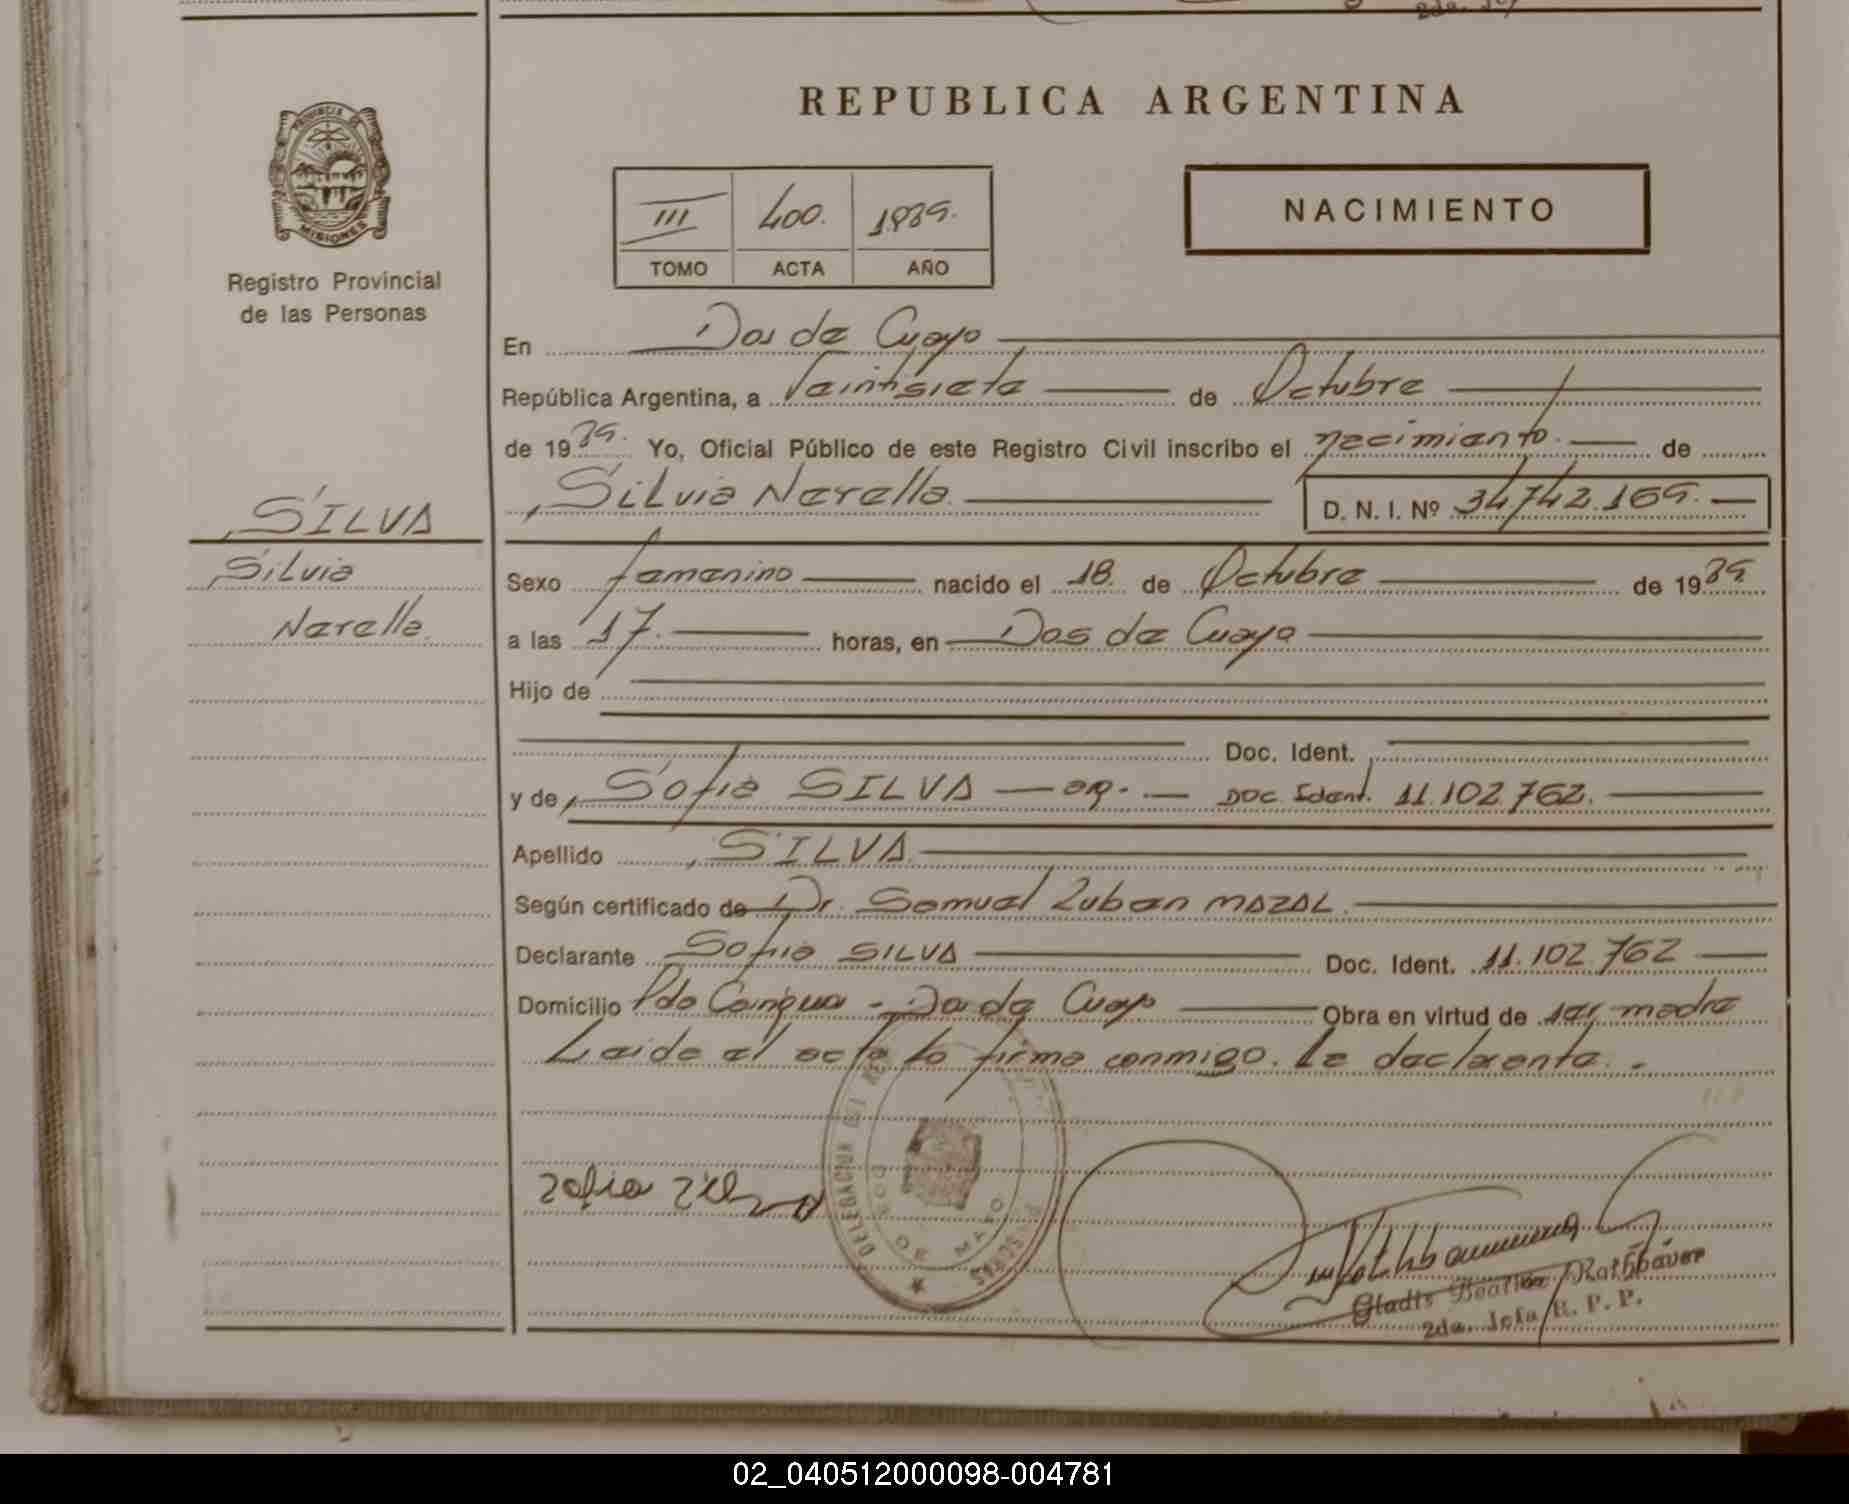 REPUBLICA ARGENTINA
PROVINCIA DE
MISIONES
Registro Provincial
de las Personas
III 400. 1989.
TOMO ACTA AÑO
NACIMIENTO
En Dos de Mayo
República Argentina, a Veintisiete de Octubre
de 1989. Yo, Oficial Público de este Registro Civil inscribo el nacimiento. de
Silvia Narella. D. N. I. Nº 34742.169.
SILVA
Silvia
Narella.
Sexo femenino nacido el 18. de Octubre de 1989.
a las 17. horas, en Dos de Mayo
Hijo de
Doc. Ident.
y de Sofia SILVA — ar. — Doc. Ident. 11.102.762.
Apellido SILVA.
Según certificado de Dr. Samuel Luban MAZAL.
Declarante Sofia SILVA Doc. Ident. 11.102.762
Domicilio Pdo Cainguas - Dos de Mayo Obra en virtud de ser madre
Leida el acta la firma conmigo. La declarante. -
DELEGACION DEL REG
DOS DE MAYO
MISIONES
Zofia Zilva
Gladis Beatriz Rathbaver
2da. Jefa R. P. P.
02_040512000098-004781